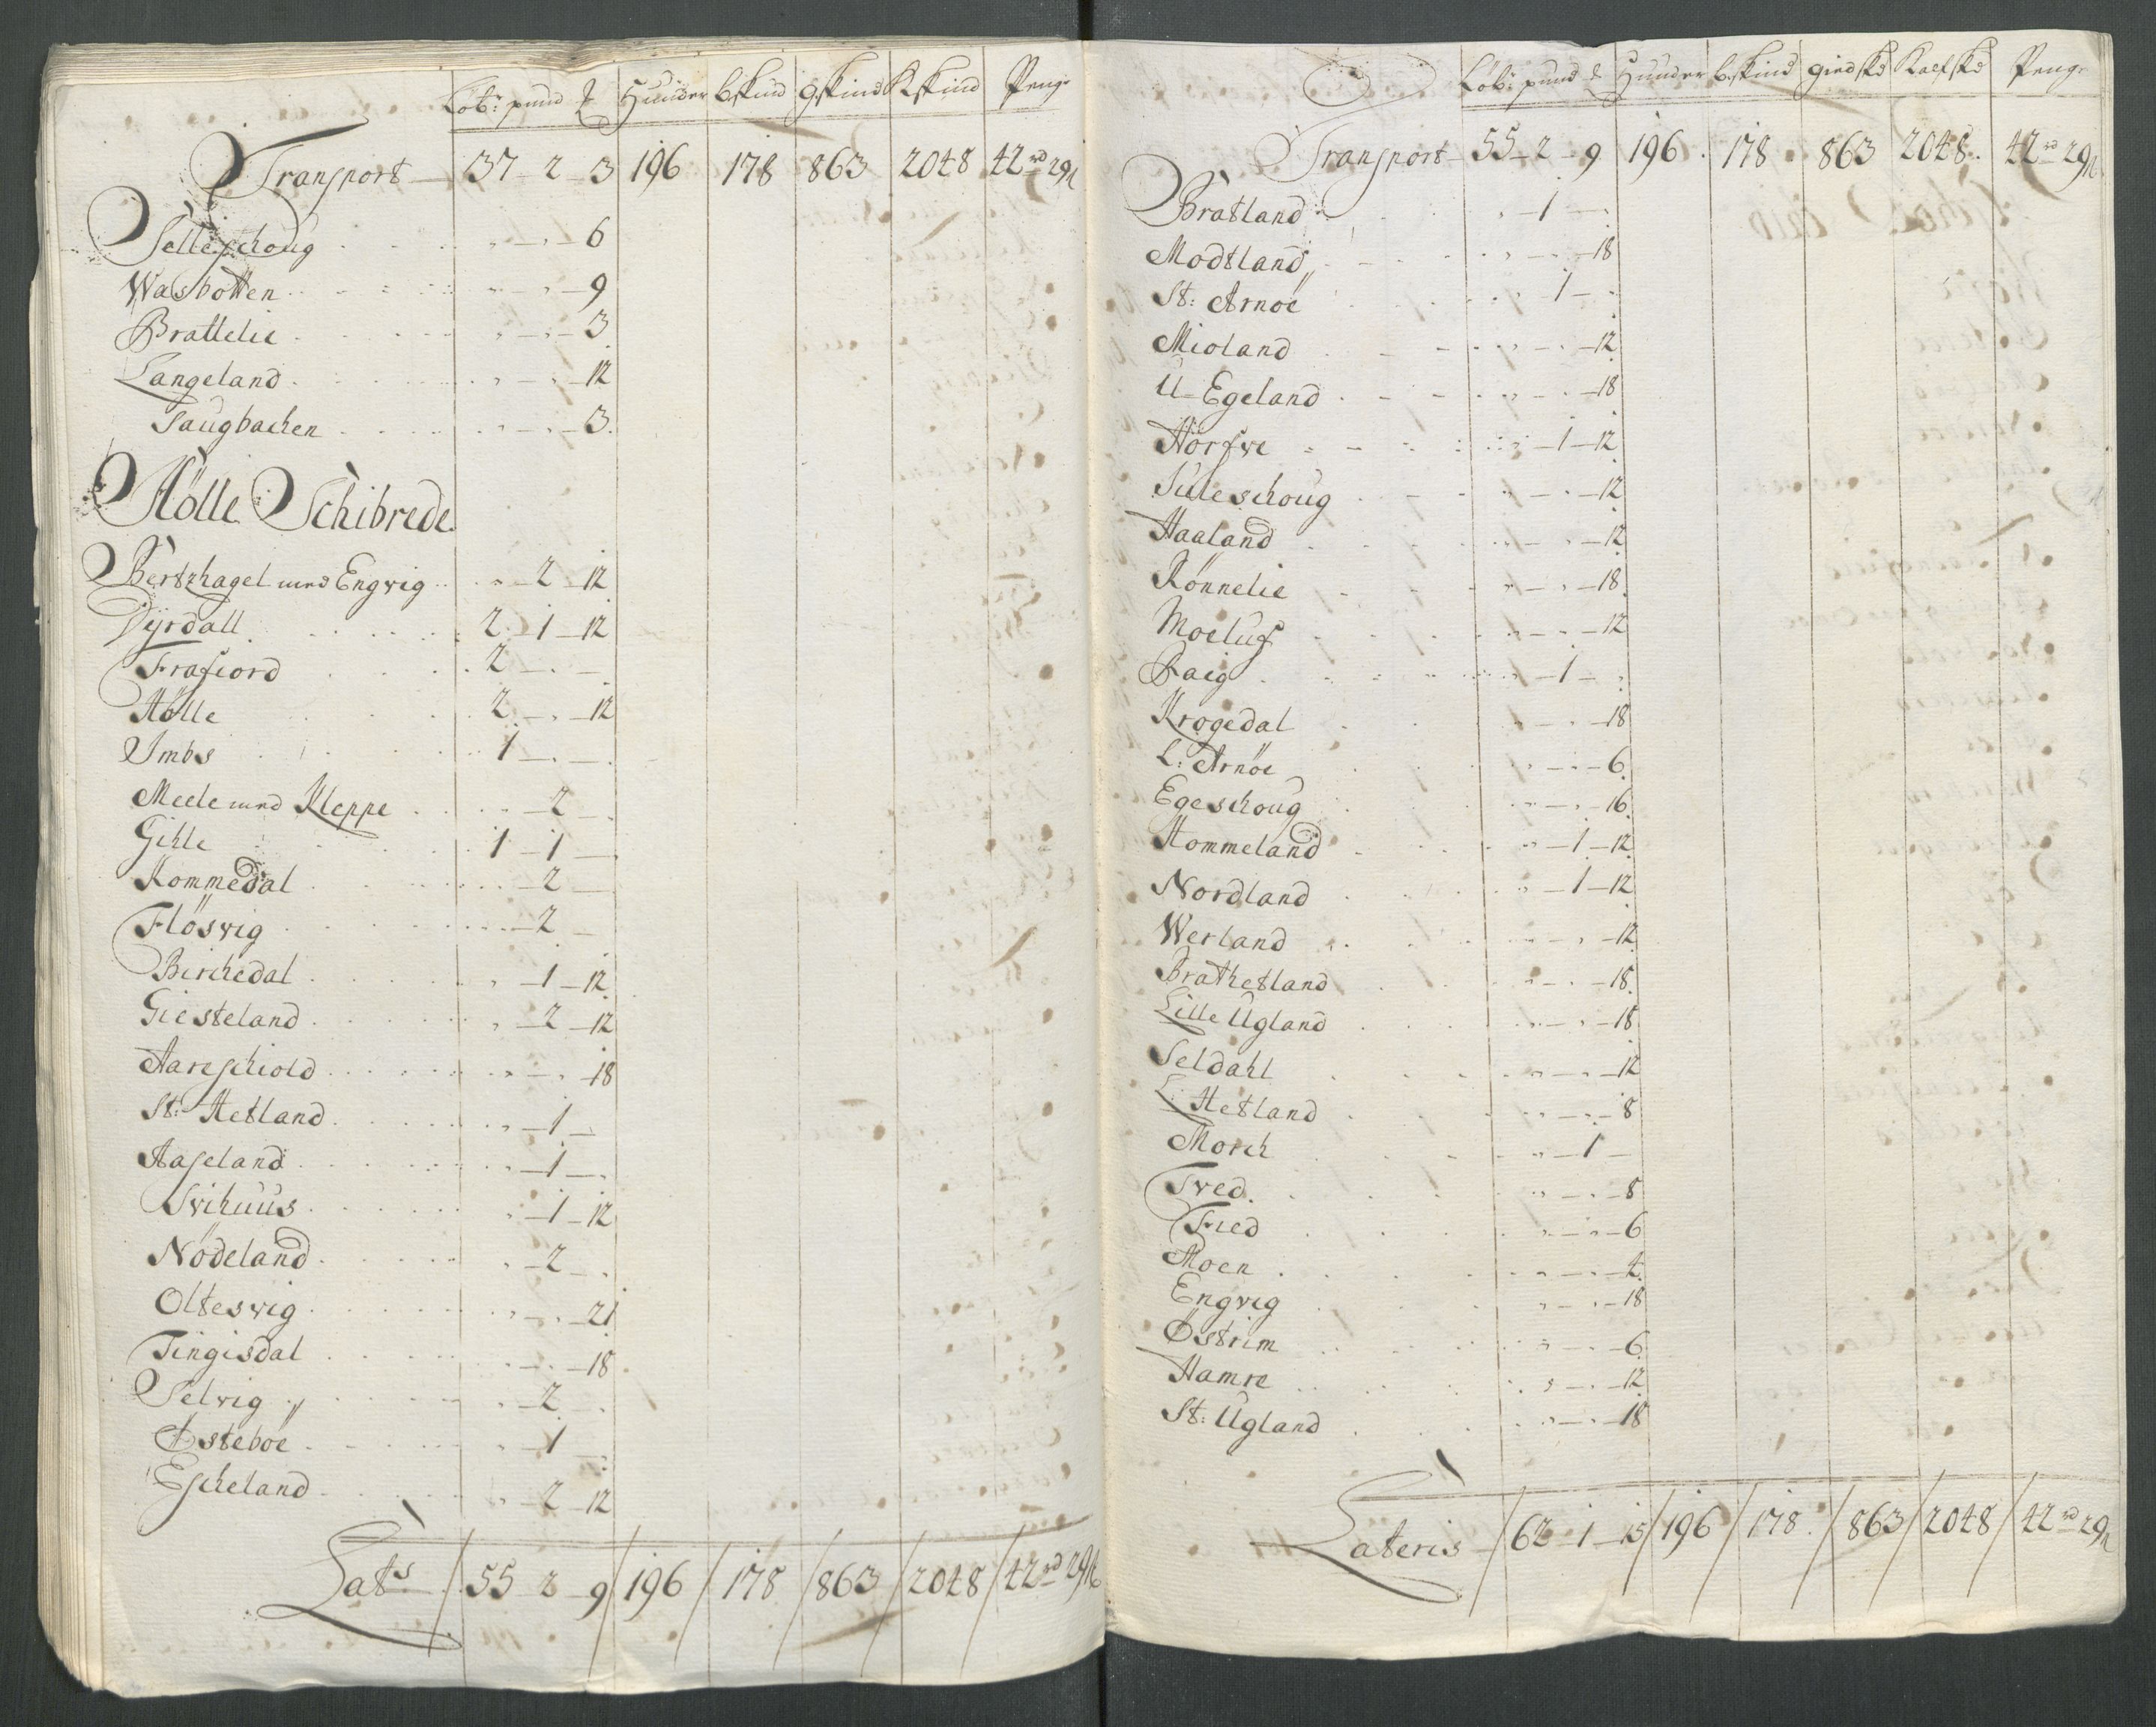 Löb: pund ℔ Hunder b:skind g.skind K.skind Peng:
Transport 37 - 2 - 3 196 178 863 2048 42 rd 29
Selleschoug . . . " - " - 6
Wasbotten . . . " - " - 9
Brattelie . . . " - " - 3
Langeland . . . " - " - 12
Saugbachen . . . " - " - 3
Hölle Schibrede
Bertzhagel med Engvig . . " - 2 - 12
Dyrdall . . . 2 - 1 - 12
Frafiord . . . 2 - " -
Hölle . . . 2 - " - 12
Imbs . . . 1 - " -
Meele med Kleppe . . . - 2 -
Gihle . . . 1 - 1 -
Kommedal . . . - 2 -
Flösvig . . . - 2 -
Birchedal . . . " - 1 - 12
Giesteland . . . " - 2 - 12
Aareschiold . . . " - " - 18
St: Hetland . . . " - 1 -
Aaseland . . . - 1 -
Svihuus . . . " - 1 - 12
Nödeland . . . " - 2 -
Oltesvig . . . " - " - 21
Tingisdal . . . - " - 18
Selvig . . . " - 2 -
Østeböe . . . " - 1 -
Escheland . . . " - 2 - 12
Lats 55 2 - 9 / 196 / 178 / 863 / 2048 / 42 rd 29
Löb: pund ℔ Hunder b:skind giedskd Kalfskd Peng:
Transport 55 - 2 - 9 196 178 863 2048 42 rd 29
Bratland . . . " - 1 -
Modtland . . . " - " - 18
St: Arnöe . . . " 1 -
Mioland . . . " - " - 12
U-Egeland . . . " - " - 18
Hörfve . . . " - 1 - 12
Suleschoug . . . " - " - 12
Haaland . . . " - " - 12
Rönnelie . . . " - " - 18
Moeluf . . . " - " - 12
Raig . . . " - 1 -
Krogedal . . . " - " - 18
L: Arnöe . . . " - " - 6
Egeschoug . . . " - " - 16
Hommeland . . . " - 1 - 12
Nordland . . . " - 1 - 12
Werland . . . " - " - 12
Brathetland . . . " - " - 18
Lille Ugland . . . " - " - 18
Seldahl . . . " - " - 12
L: Hetland . . . " - " - 8
Morch . . . " - 1 -
Tved . . . " - " - 8
Fied . . . " - " - 6
Moen . . . " - " - 4
Engvig . . . " - " - 18
Östrim . . . " - " - 6
Hamre . . . " - " - 12
St: Ugland . . . " - " - 18
Lateris / 62 - 1 - 15 / 196 / 178 / 863 / 2048 / 42 rd 29